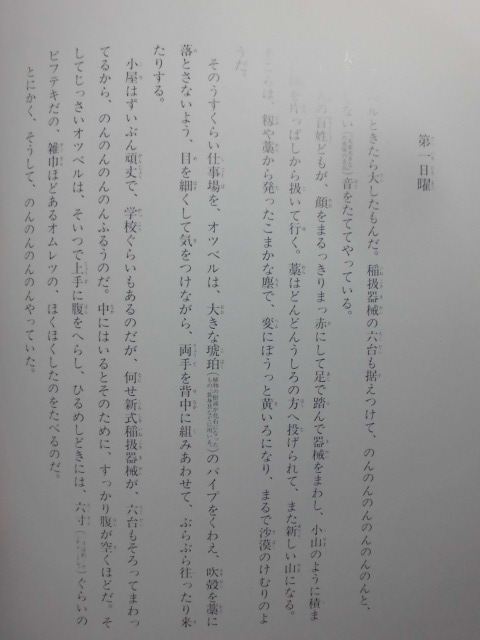 第一日曜
ベルときたら大したもんだ。稲扱器械の六台も据えつけて、のんのんのんのんのんのんと、
ない音をたててやっている。
の百姓どもが、顔をまるっきりまっ赤にして足で踏んで器械をまわし、小山のように積ま
を片っぱしから扱いて行く。藁はどんどんうしろの方へ投げられて、また新しい山になる。
こらは、籾や藁から発ったこまかな塵で、変にぼうっと黄いろになり、まるで沙漠のけむりのよ
うだ。
そのうすくらい仕事場を、オツベルは、大きな琥珀のパイプをくわえ、吹殻を藁に
落とさないよう、目を細くして気をつけながら、両手を背中に組みあわせて、ぶらぶら往ったり来
たりする。
小屋はずいぶん頑丈で、学校ぐらいもあるのだが、何せ新式稲扱器械が、六台もそろってまわっ
てるから、のんのんのんのんふるうのだ。中にはいるとそのために、すっかり腹が空くほどだ。そ
してじっさいオツベルは、そいつで上手に腹をへらし、ひるめしどきには、六寸ぐらいの
ビフテキだの、雑巾ほどあるオムレツの、ほくほくしたのをたべるのだ。
とにかく、そうして、のんのんのんのんやっていた。